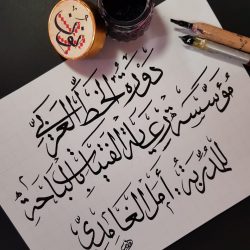 دورة الخط العربي
مؤسسة رعاية الفتيات بالباحة
للمدربة: أمل الغامدي